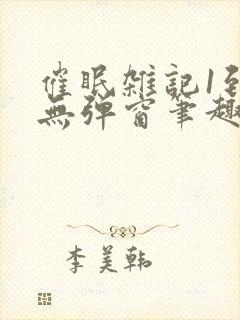 催眠雑記1到
無弹窗筆趣
李美韩